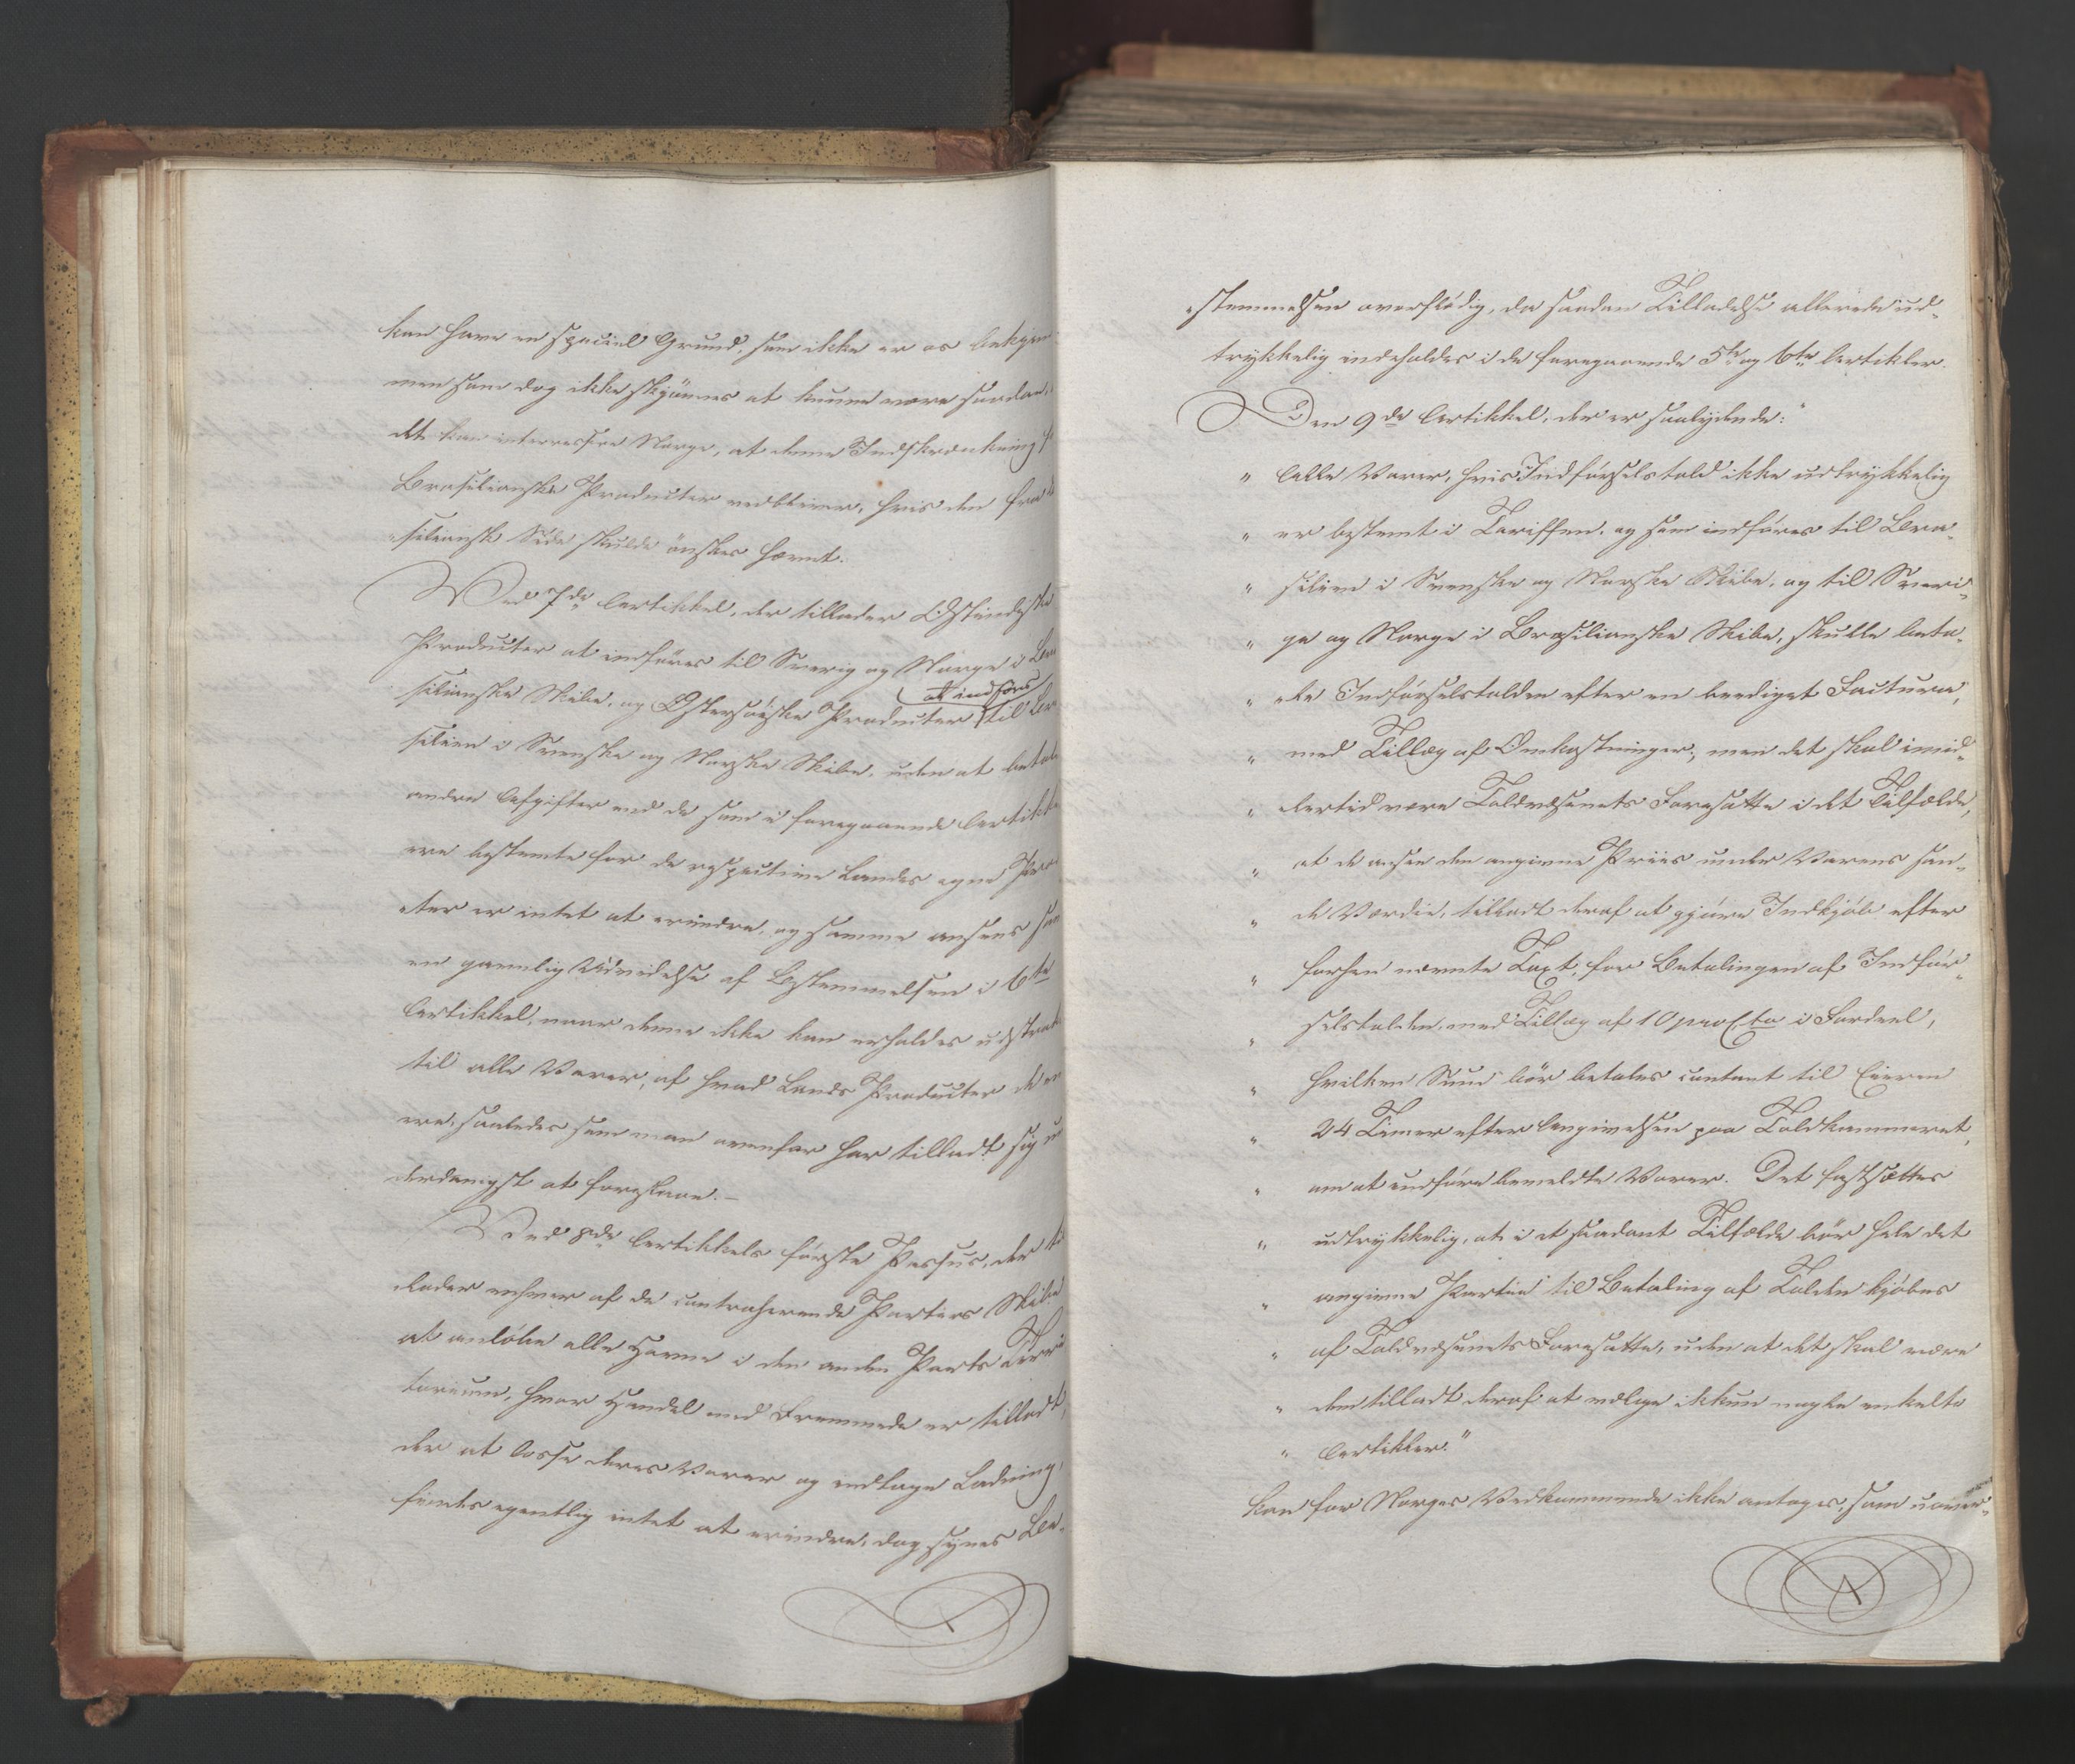 kan have en speciel Grund, som ikke er os bekjen
men som dog ikke skjønnes at kunne være saadan,
dets kan interressere Norge, at denne Indskrænkning f
Brasilianske Producter vedbliver, hvis den fra
siliansk Side skulde ønskes hævet.
Ved 7de Artikkel, der tillader Ostindiske
Producter at indføres til Sverig og Norge i Bra
silianske Skibe, og Østersøiske Producter at indføres til Bra
silien i Svenske og Norske Skibe, uden at betale
andre Afgifter end de som i foregaaende Artikkel
ere bestemte for de respective Landes egne Pro-
cter er intet at erindre, og samme ansees som
en gavnlig Udvidelse af Bestemmelsen i 6te
Artikkel, naar denne ikke kan erholdes udstrakt
til alle Varer, af hvad Lands Producter de en
ere, saaledes som man ovenfor har tilladt sig un
derdanigst at foreslaae. –
Ved 8de Artikkels første Passus, der til
lader enhver af de contraherende Parters Skibe
at anløbe alle Havne i den anden Parts Terri
torium, hvor Handel med Fremmede er tilladt,
der at losse deres Varer og indtage Ladning,
findes egentlig intet at erindre, dog synes Be-
stemmelsen overflødig, da saadan Tilladelse allerede ud-
trykkelig indeholdes i de foregaaende 5te og 6te Artikler.
Den 9de Artikkel, der er saalydende:
" Alle Varer, hvis Indførselstold ikke udtrykkelig
" er bestemt i Tariffen, og som indføres til Bra-
" silien i Svenske og Norske Skibe, og til Sveri-
" ge og Norge i Brasilianske Skibe, skulle beta-
" le Indførselstolden efter en beediget Factura,
" med Tillæg af Omkostninger; men det skal imid-
" lertid være Toldvæsenets Foresatte i det Tilfælde,
" at de ansee den angivne Priis under Varens san-
" de Værdie, tilladt deraf at gjøre Indkjøb efter
" forhen nævnte Taxt, for Betalingen af Indfør-
" selstolden, med Tillæg af 10 pro Cto i Fordeel,
" hvilken Sum bør betales contant til Eieren
" 24 Timer efter Angivelsen paa Toldkammeret,
" om at indføre bemeldte Varer. Det fastsættes
" udtrykkelig, at i et saadant Tilfælde bør hele det
" angivne Partie til Betaling af Tolden kjøbes
" af Toldvæsenets Foresatte, uden at det skal være
" dem tilladt deraf at vælge ikkun nogle enkelte
" Artikler."
kan for Norges Vedkommende ikke antages, som uover-